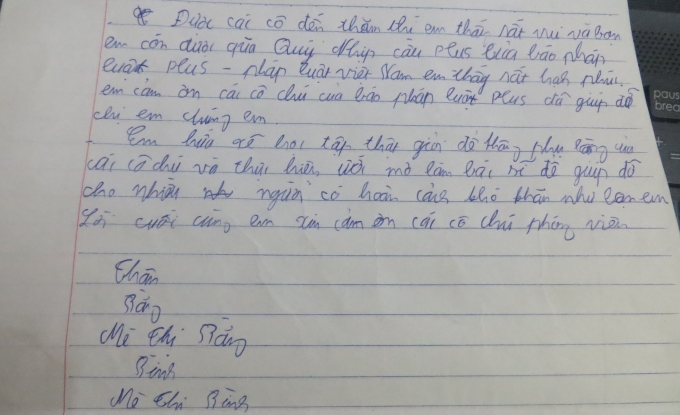 - Được các cô đến thăm thì em thấy rất vui và hơn
em còn được qũa Quỹ Nhịp cầu Plus của báo pháp
luật Plus - pháp luật việt Nam em thấy rất hạnh phúc,
em cảm ơn các cô chú của báo pháp luật Plus đã giúp đỡ
chị em chúng em.
- Em hứa sẽ học tập thật giỏi để không phụ lòng của
các cô chú và thực hiện ước mơ làm bác sĩ để giúp đỡ
cho nhiều người có hoàn cảnh khó khăn như em
Lời cuối cùng em xin cảm ơn các cô chú phóng viên
Mè Thị
Mè Thị
pause
break